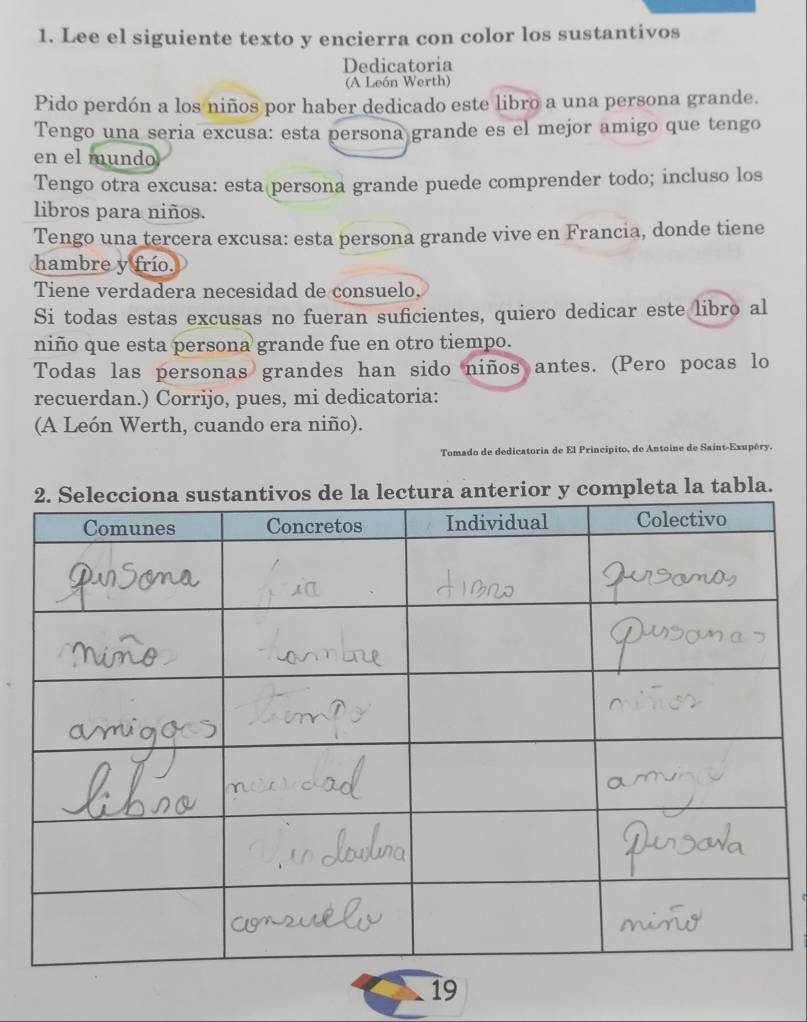 1. Lee el siguiente texto y encierra con color los sustantivos
Dedicatoria
(A León Werth)
Pido perdón a los niños por haber dedicado este libro a una persona grande.
Tengo una seria excusa: esta persona grande es el mejor amigo que tengo
en el mundo.
Tengo otra excusa: esta persona grande puede comprender todo; incluso los
libros para niños.
Tengo una tercera excusa: esta persona grande vive en Francia, donde tiene
hambre y frío.
Tiene verdadera necesidad de consuelo.
Si todas estas excusas no fueran suficientes, quiero dedicar este libro al
niño que esta persona grande fue en otro tiempo.
Todas las personas grandes han sido niños antes. (Pero pocas lo
recuerdan.) Corrijo, pues, mi dedicatoria:
(A León Werth, cuando era niño).
Tomado de dedicatoria de El Principito, de Antoine de Saint-Exupéry.
2. Selecciona sustantivos de la lectura anterior y completa la tabla.
Comunes Concretos Individual Colectivo
persona libro personas
niño hambre personas
amigos tiempo niños
libro necesidad amigo
consuelo niño
19